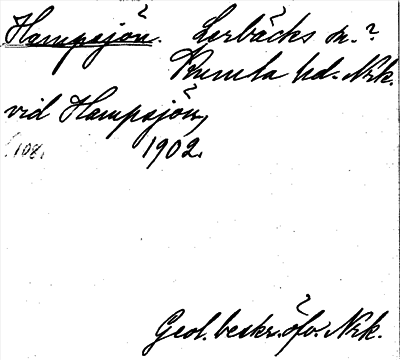 Hampsjön. Lerbäcks sn.?
Kumla hd. Nrk.
vid Hampsjön,
108. 1902.
Geol. beskr. öfv. Nrk.